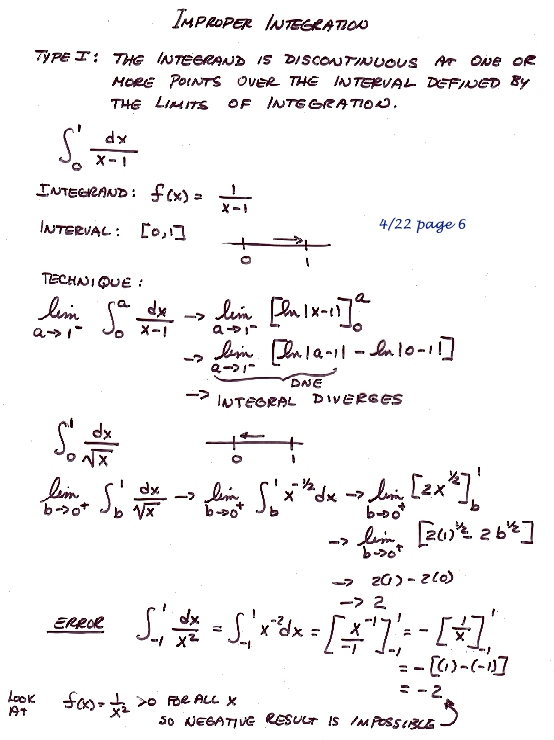 IMPROPER INTEGRATION
TYPE I: THE INTEGRAND IS DISCONTINUOUS AT ONE OR
MORE POINTS OVER THE INTERVAL DEFINED BY
THE LIMITS OF INTEGRATION.
∫₀¹ dx/(x-1)
INTEGRAND: f(x) = 1/(x-1)
INTERVAL: [0,1]
0 1
4/22 page 6
TECHNIQUE:
lim a→1⁻ ∫₀ᵃ dx/(x-1) → lim a→1⁻ [ln|x-1|]₀ᵃ
→ lim a→1⁻ [ln|a-1| - ln|0-1|]
DNE
→ INTEGRAL DIVERGES
∫₀¹ dx/√x
0 1
lim b→0⁺ ∫_b¹ dx/√x → lim b→0⁺ ∫_b¹ x^(-1/2) dx → lim b→0⁺ [2x^(1/2)]_b¹
→ lim b→0⁺ [2(1)^(1/2) - 2b^(1/2)]
→ 2(1) - 2(0)
→ 2
ERROR ∫₋₁¹ dx/x² = ∫₋₁¹ x⁻² dx = [x⁻¹/-1]₋₁¹ = -[1/x]₋₁¹
= -[(1)-(-1)]
= -2
LOOK AT f(x) = 1/x² >0 FOR ALL x
SO NEGATIVE RESULT IS IMPOSSIBLE